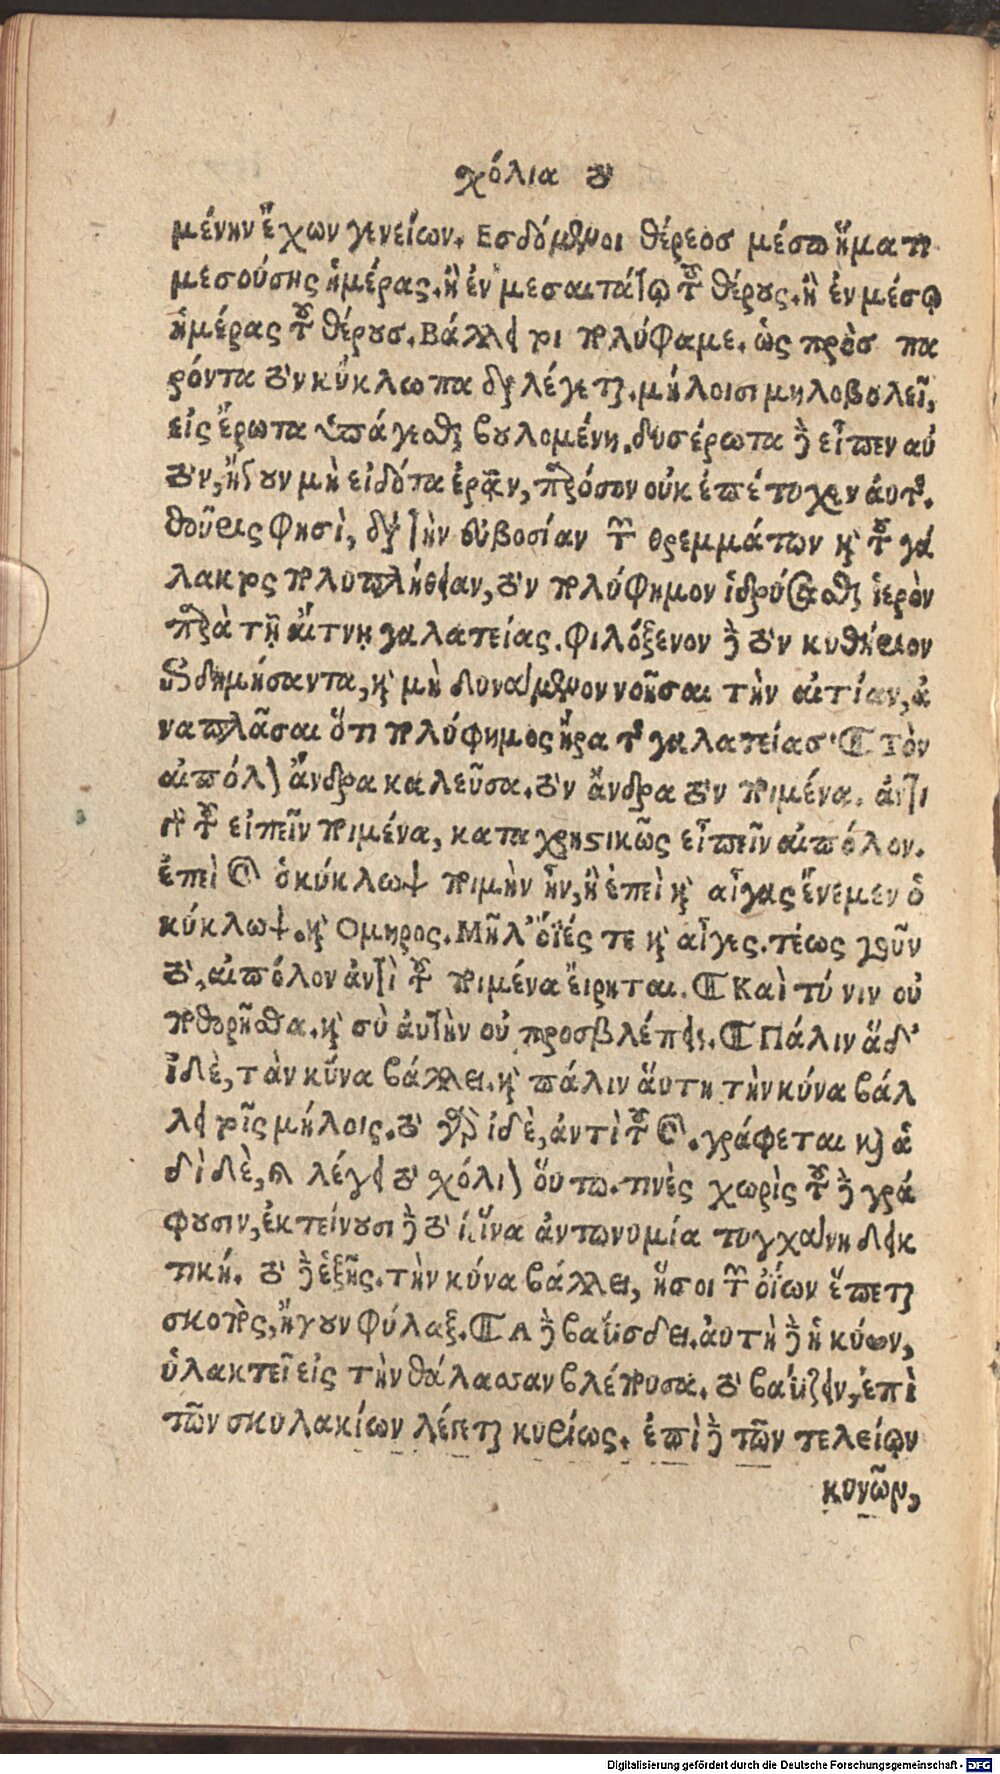 χόλια τὸ
μένην ἔχων γενείων. Εσδόμενοι θέρεος μέσῳ ἤματι
μεσούσης ἡμέρας. ἢ ἐν μεσαιτάτῳ τοῦ θέρους. ἢ ἐν μέσῳ
ἡμέρας τοῦ θέρους. Βάλλει τοι πολύφαμε. ὡς πρὸς πα
ρόντα τὸν κύκλωπα διαλέγεται. μήλοισι μηλοβολεῖ,
εἰς ἔρωτα ὑπάγεσθαι βουλομένη. δυσέρωτα δὲ εἶπεν αὐ
τὸν, ἤγουν μὴ εἰδότα ἐρᾶν, παρόσον οὐκ ἐπέτυχεν αὐτῆς.
θοῦρις φησὶ, διὰ τὴν εὐβοσίαν τῶν θρεμμάτων καὶ τοῦ γά
λακτος πολυπλήθειαν, τὸν πολύφημον ἱδρύσασθαι ἱερὸν
παρὰ τῇ αἴτνῃ γαλατείας. φιλόξενον δὲ τὸν κυθήριον
ἐπιδημήσαντα, καὶ μὴ δυνάμενον νοῆσαι τὴν αἰτίαν, ἀ
ναπλᾶσαι ὅτι πολύφημος ἤρα τῆς γαλατείας. Τὸν
αἰπόλον ἄνδρα καλεῦσα. τὸν ἄνδρα τὸν ποιμένα. ἀντὶ
γὰρ τοῦ εἰπεῖν ποιμένα, καταχρηστικῶς εἶπεῖν αἰπόλον.
ἐπεὶ καὶ ὁ κύκλωψ ποιμὴν ἦν, ἢ ἐπεὶ καὶ αἶγας ἔνεμεν ὁ
κύκλωψ. καὶ Ομηρος. Μῆλ' ὄϊές τε καὶ αἶγες. τέως γοῦν
τὸ, αἰπόλον ἀντὶ τοῦ ποιμένα εἴρηται. Καὶ τύ νιν οὐ
ποθορῆσθα. καὶ σὺ αὐτὴν οὐ προσβλέπεις. Πάλιν ἅδ'
ἴδὲ, τὰν κύνα βάλλει. καὶ πάλιν αὕτη τὴν κύνα βάλ
λει τοῖς μήλοις. τὸ γὰρ ἰδὲ, ἀντὶ τοῦ . γράφεται καὶ ἁ
δὶ δὲ, λέγει τὸ χόλιον οὕτω. τινὲς χωρὶς τοῦ δὲ γρά
φουσιν, ἐκτείνουσι δὲ τὸ ι, ἵνα ἀντωνυμία τυγχάνῃ δεικ
τική. τὸ δὲ ἑξῆς. τὴν κύνα βάλλει, ἥσοι τῶν ὀΐων ἕπεται
σκοπὸς, ἤγουν φύλαξ. Α δὲ βαΰσδει. αὐτὴ δὲ ἡ κύων,
ὑλακτεῖ εἰς τὴν θάλασσαν βλέπουσα. τὸ βαΰζειν, ἐπὶ
τῶν σκυλακίων λέγεται κυρίως. ἐπὶ δὲ τῶν τελείων
κυνῶν,
Digitalisierung gefördert durch die Deutsche Forschungsgemeinschaft - DFG